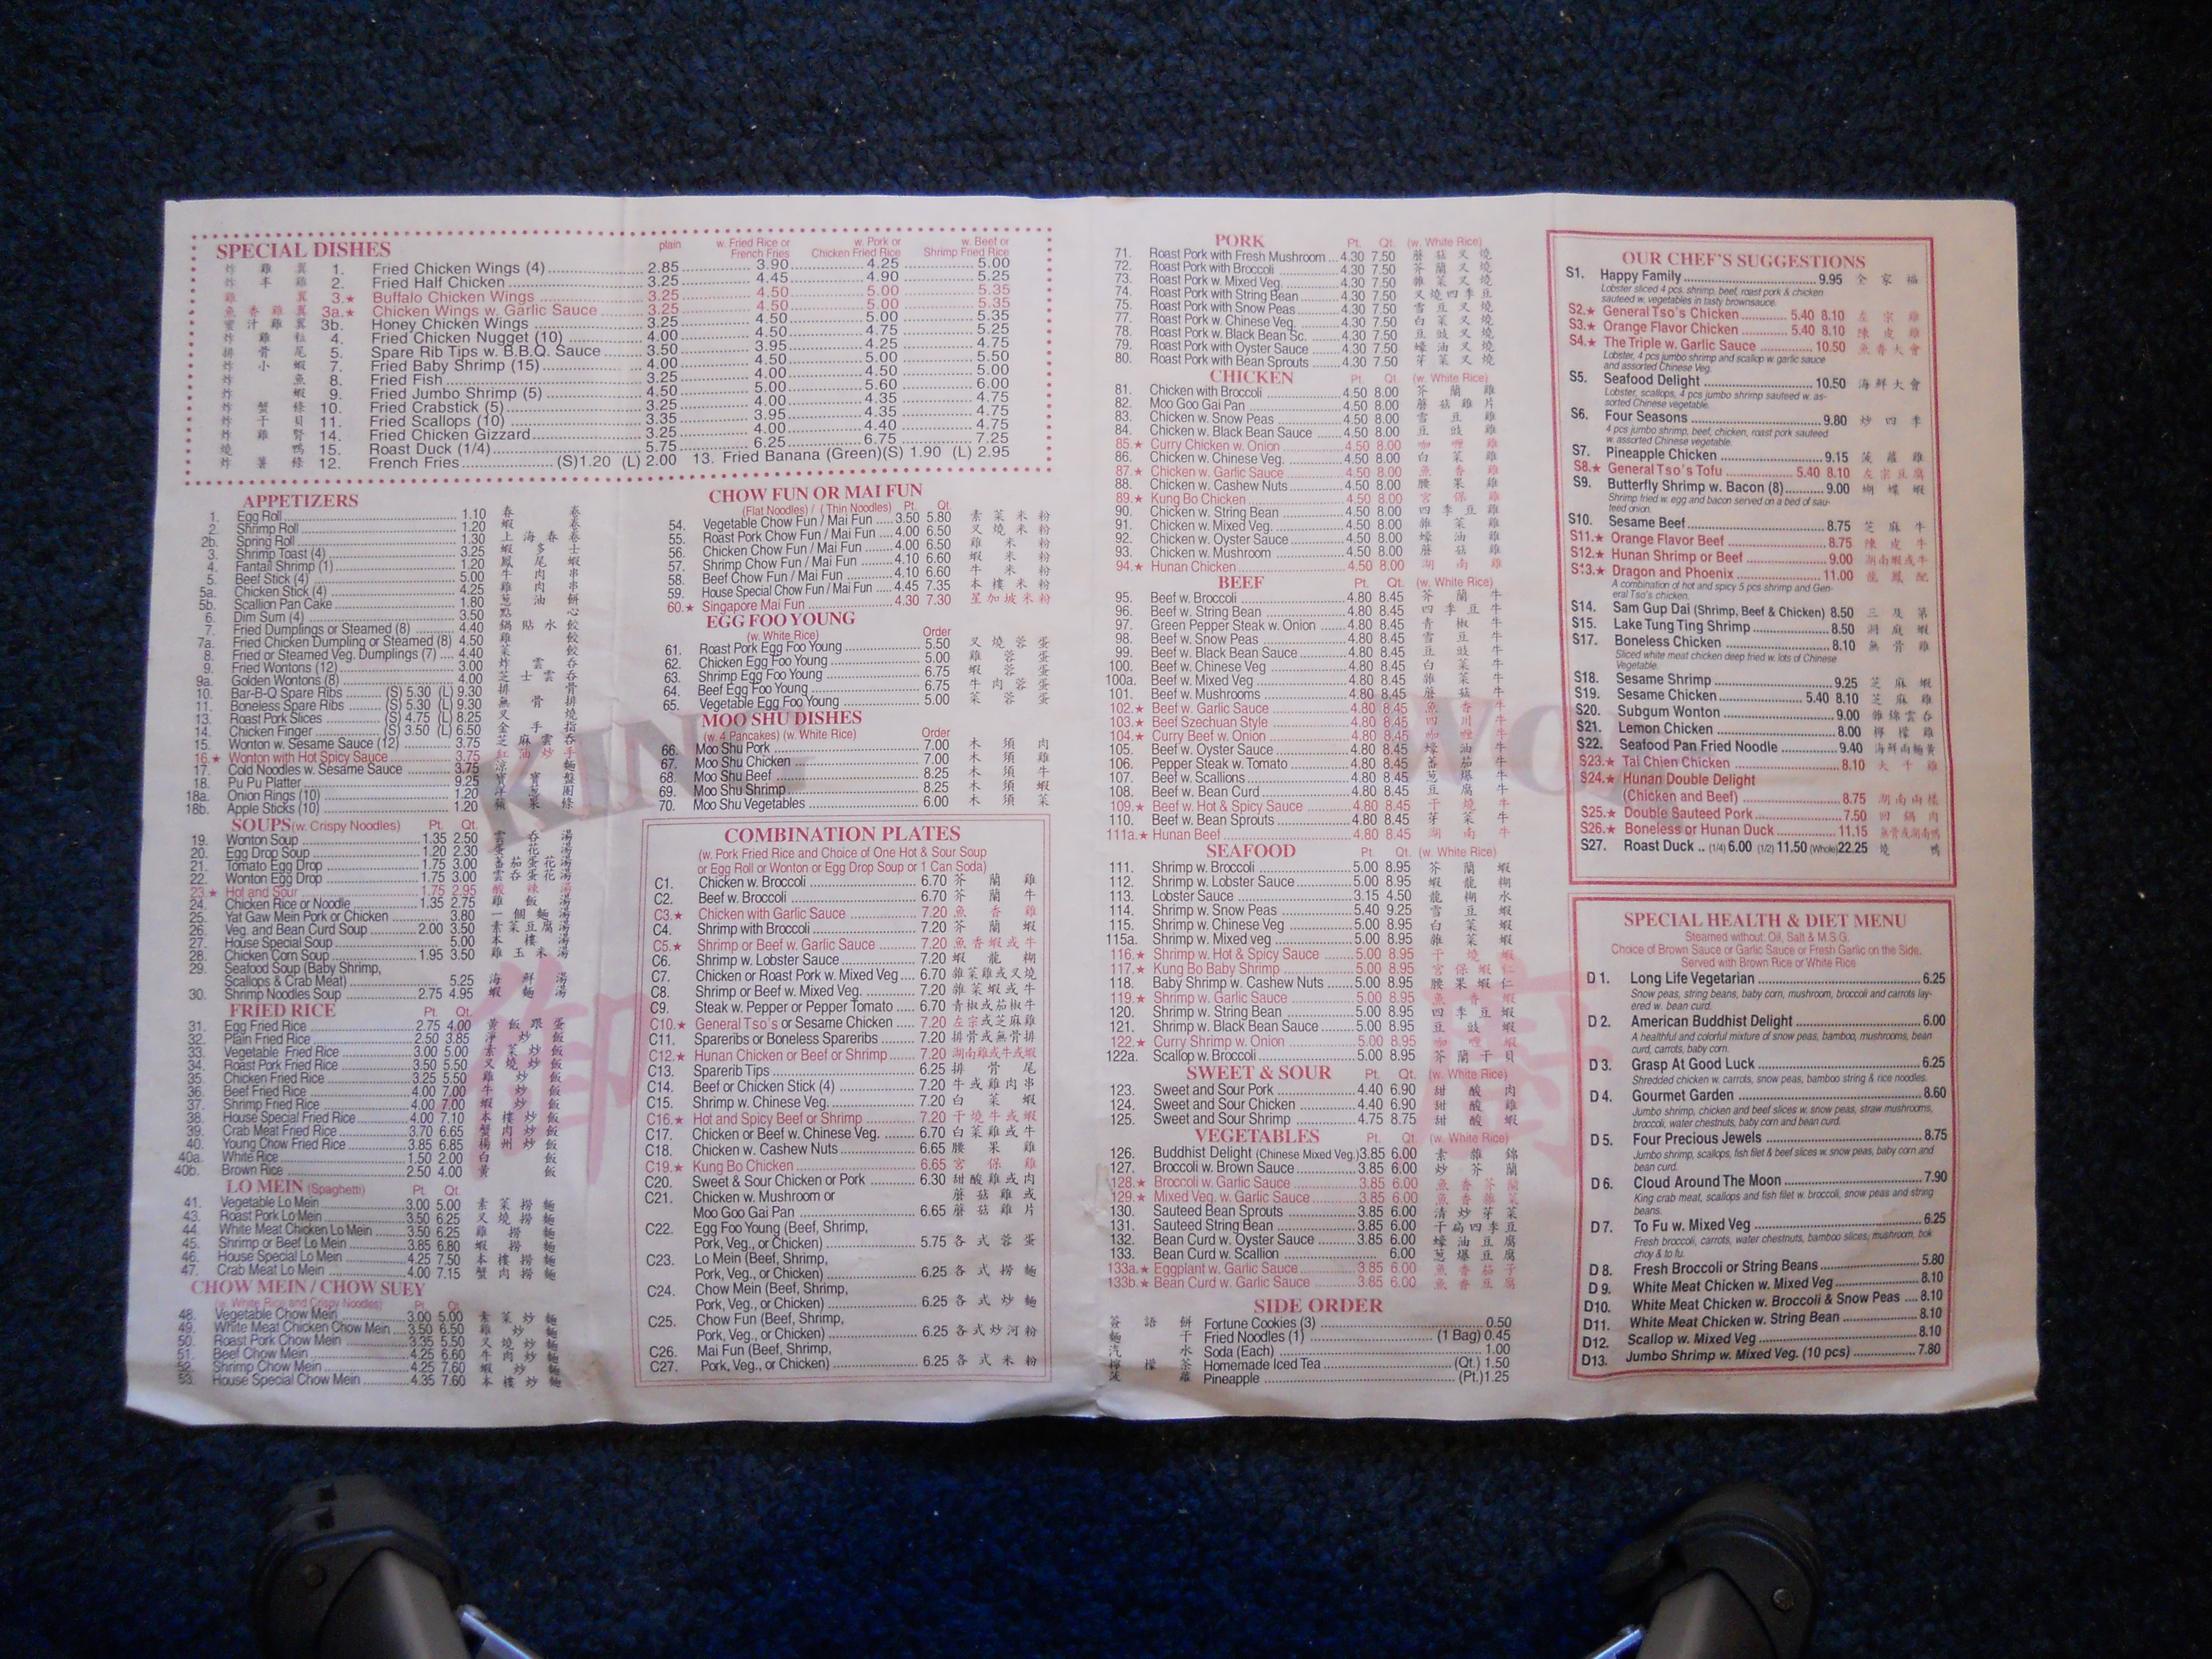 SPECIAL DISHES
plain w. Fried Rice or French Fries w. Pork or Chicken Fried Rice w. Beef or Shrimp Fried Rice
炸雞翼 1. Fried Chicken Wings (4) 2.85 3.90 4.25 5.00
炸半雞 2. Fried Half Chicken 3.25 4.45 4.90 5.25
雞翼 3.★ Buffalo Chicken Wings 3.25 4.50 5.00 5.35
魚香雞翼 3a.★ Chicken Wings w. Garlic Sauce 3.25 4.50 5.00 5.35
蜜汁雞翼 3b. Honey Chicken Wings 3.25 4.50 5.00 5.35
炸雞粒 4. Fried Chicken Nugget (10) 4.00 4.50 4.75 5.25
排骨尾 5. Spare Rib Tips w. B.B.Q. Sauce 3.50 3.95 4.25 4.75
炸小蝦 7. Fried Baby Shrimp (15) 4.00 4.50 5.00 5.50
炸魚 8. Fried Fish 3.25 4.00 4.50 5.00
炸蝦 9. Fried Jumbo Shrimp (5) 4.50 5.00 5.60 6.00
炸蟹條 10. Fried Crabstick (5) 3.25 4.00 4.35 4.75
炸干貝 11. Fried Scallops (10) 3.35 3.95 4.35 4.75
炸雞腎 14. Fried Chicken Gizzard 3.25 4.00 4.40 4.75
燒鴨 15. Roast Duck (1/4) 5.75 6.25 6.75 7.25
炸薯條 12. French Fries (S)1.20 (L) 2.00 13. Fried Banana (Green)(S) 1.90 (L) 2.95
APPETIZERS
1. Egg Roll 1.10 春卷
2. Shrimp Roll 1.20 蝦卷
2b. Spring Roll 1.30 上海春卷
3. Shrimp Toast (4) 3.25 蝦多士
4. Fantail Shrimp (1) 1.20 鳳尾蝦
5. Beef Stick (4) 5.00 牛肉串
5a. Chicken Stick (4) 4.25 雞肉串
5b. Scallion Pan Cake 1.80 葱油餅
6. Dim Sum (4) 3.50 點心
7. Fried Dumplings or Steamed (8) 4.40 鍋貼水餃
7a. Fried Chicken Dumpling or Steamed (8) 4.50 雞餃
8. Fried or Steamed Veg. Dumplings (7) 4.40 菜餃
9. Fried Wontons (12) 3.00 炸雲吞
9a. Golden Wontons (8) 4.00 芝士雲吞
10. Bar-B-Q Spare Ribs (S) 5.30 (L) 9.30 排骨
11. Boneless Spare Ribs (S) 5.30 (L) 9.30 無骨排
13. Roast Pork Slices (S) 4.75 (L) 8.25 叉燒
14. Chicken Finger (S) 3.50 (L) 6.50 金手指
15. Wonton w. Sesame Sauce (12) 3.75 芝麻雲吞
16.★ Wonton with Hot Spicy Sauce 3.75 紅油炒手
17. Cold Noodles w. Sesame Sauce 3.75 涼麵
18. Pu Pu Platter 9.25 寶寶盤
18a. Onion Rings (10) 1.20 洋葱圈
18b. Apple Sticks (10) 1.20 蘋果條
SOUPS (w. Crispy Noodles) Pt. Qt.
19. Wonton Soup 1.35 2.50 雲吞湯
20. Egg Drop Soup 1.20 2.30 蛋花湯
21. Tomato Egg Drop 1.75 3.00 蕃茄蛋花湯
22. Wonton Egg Drop 1.75 3.00 雲吞蛋花湯
23.★ Hot and Sour 1.75 2.95 酸辣湯
24. Chicken Rice or Noodle 1.35 2.75 雞飯湯
25. Yat Gaw Mein Pork or Chicken 3.80 一個麵湯
26. Veg. and Bean Curd Soup 2.00 3.50 素菜豆腐湯
27. House Special Soup 5.00 本樓湯
28. Chicken Corn Soup 1.95 3.50 雞玉米湯
29. Seafood Soup (Baby Shrimp,
Scallops & Crab Meat) 5.25 海鮮湯
30. Shrimp Noodles Soup 2.75 4.95 蝦麵湯
FRIED RICE Pt. Qt.
31. Egg Fried Rice 2.75 4.00 黃飯跟蛋
32. Plain Fried Rice 2.50 3.85 淨炒飯
33. Vegetable Fried Rice 3.00 5.00 素菜炒飯
34. Roast Pork Fried Rice 3.50 5.50 叉燒炒飯
35. Chicken Fried Rice 3.25 5.50 雞炒飯
36. Beef Fried Rice 4.00 7.00 牛炒飯
37. Shrimp Fried Rice 4.00 7.00 蝦炒飯
38. House Special Fried Rice 4.00 7.10 本樓炒飯
39. Crab Meat Fried Rice 3.70 6.65 蟹肉炒飯
40. Young Chow Fried Rice 3.85 6.85 楊州炒飯
40a. White Rice 1.50 2.00 白飯
40b. Brown Rice 2.50 4.00 黃飯
LO MEIN (Spaghetti) Pt. Qt.
41. Vegetable Lo Mein 3.00 5.00 素菜撈麵
43. Roast Pork Lo Mein 3.50 6.25 叉燒撈麵
44. White Meat Chicken Lo Mein 3.50 6.25 雞撈麵
45. Shrimp or Beef Lo Mein 3.85 6.80 蝦撈麵
46. House Special Lo Mein 4.25 7.50 本樓撈麵
47. Crab Meat Lo Mein 4.00 7.15 蟹肉撈麵
CHOW MEIN / CHOW SUEY
(w. White Rice and Crispy Noodles) Pt. Qt.
48. Vegetable Chow Mein 3.00 5.00 素菜炒麵
49. White Meat Chicken Chow Mein 3.50 6.50 雞炒麵
50. Roast Pork Chow Mein 3.35 5.50 叉燒炒麵
51. Beef Chow Mein 4.25 6.60 牛肉炒麵
52. Shrimp Chow Mein 4.25 7.60 蝦炒麵
53. House Special Chow Mein 4.35 7.60 本樓炒麵
CHOW FUN OR MAI FUN
(Flat Noodles) / (Thin Noodles) Pt. Qt.
54. Vegetable Chow Fun / Mai Fun 3.50 5.80 素菜米粉
55. Roast Pork Chow Fun / Mai Fun 4.00 6.50 叉燒米粉
56. Chicken Chow Fun / Mai Fun 4.00 6.50 雞米粉
57. Shrimp Chow Fun / Mai Fun 4.10 6.60 蝦米粉
58. Beef Chow Fun / Mai Fun 4.10 6.60 牛米粉
59. House Special Chow Fun / Mai Fun 4.45 7.35 本樓米粉
60.★ Singapore Mai Fun 4.30 7.30 星加坡米粉
EGG FOO YOUNG
(w. White Rice) Order
61. Roast Pork Egg Foo Young 5.50 叉燒蓉蛋
62. Chicken Egg Foo Young 5.00 雞蓉蛋
63. Shrimp Egg Foo Young 6.75 蝦蓉蛋
64. Beef Egg Foo Young 6.75 牛肉蓉蛋
65. Vegetable Egg Foo Young 5.00 菜蓉蛋
MOO SHU DISHES
(w. 4 Pancakes) (w. White Rice) Order
66. Moo Shu Pork 7.00 木須肉
67. Moo Shu Chicken 7.00 木須雞
68. Moo Shu Beef 8.25 木須牛
69. Moo Shu Shrimp 8.25 木須蝦
70. Moo Shu Vegetables 6.00 木須菜
COMBINATION PLATES
(w. Pork Fried Rice and Choice of One Hot & Sour Soup
or Egg Roll or Wonton or Egg Drop Soup or 1 Can Soda)
C1. Chicken w. Broccoli 6.70 芥蘭雞
C2. Beef w. Broccoli 6.70 芥蘭牛
C3.★ Chicken with Garlic Sauce 7.20 魚香雞
C4. Shrimp with Broccoli 7.20 芥蘭蝦
C5.★ Shrimp or Beef w. Garlic Sauce 7.20 魚香蝦或牛
C6. Shrimp w. Lobster Sauce 7.20 蝦龍糊
C7. Chicken or Roast Pork w. Mixed Veg 6.70 雜菜雞或叉燒
C8. Shrimp or Beef w. Mixed Veg. 7.20 雜菜蝦或牛
C9. Steak w. Pepper or Pepper Tomato 6.70 青椒或茄椒牛
C10.★ General Tso's or Sesame Chicken 7.20 左宗或芝麻雞
C11. Spareribs or Boneless Spareribs 7.20 排骨或無骨排
C12.★ Hunan Chicken or Beef or Shrimp 7.20 湖南雞或牛或蝦
C13. Sparerib Tips 6.25 排骨尾
C14. Beef or Chicken Stick (4) 7.20 牛或雞肉串
C15. Shrimp w. Chinese Veg. 7.20 白菜蝦
C16.★ Hot and Spicy Beef or Shrimp 7.20 干燒牛或蝦
C17. Chicken or Beef w. Chinese Veg. 6.70 白菜雞或牛
C18. Chicken w. Cashew Nuts 6.65 腰果雞
C19.★ Kung Bo Chicken 6.65 宮保雞
C20. Sweet & Sour Chicken or Pork 6.30 甜酸雞或肉
C21. Chicken w. Mushroom or 蘑菇雞或
Moo Goo Gai Pan 6.65 蘑菇雞片
C22. Egg Foo Young (Beef, Shrimp,
Pork, Veg., or Chicken) 5.75 各式蓉蛋
C23. Lo Mein (Beef, Shrimp,
Pork, Veg., or Chicken) 6.25 各式撈麵
C24. Chow Mein (Beef, Shrimp,
Pork, Veg., or Chicken) 6.25 各式炒麵
C25. Chow Fun (Beef, Shrimp,
Pork, Veg., or Chicken) 6.25 各式炒河粉
C26. Mai Fun (Beef, Shrimp,
C27. Pork, Veg., or Chicken) 6.25 各式米粉
PORK Pt. Qt. (w. White Rice)
71. Roast Pork with Fresh Mushroom 4.30 7.50 蘑菇叉燒
72. Roast Pork with Broccoli 4.30 7.50 芥蘭叉燒
73. Roast Pork w. Mixed Veg. 4.30 7.50 雜菜叉燒
74. Roast Pork with String Bean 4.30 7.50 叉燒四季豆
75. Roast Pork with Snow Peas 4.30 7.50 雪豆叉燒
77. Roast Pork w. Chinese Veg. 4.30 7.50 白菜叉燒
78. Roast Pork w. Black Bean Sc. 4.30 7.50 豆豉叉燒
79. Roast Pork with Oyster Sauce 4.30 7.50 蠔油叉燒
80. Roast Pork with Bean Sprouts 4.30 7.50 芽菜叉燒
CHICKEN Pt. Qt. (w. White Rice)
81. Chicken with Broccoli 4.50 8.00 芥蘭雞
82. Moo Goo Gai Pan 4.50 8.00 蘑菇雞片
83. Chicken w. Snow Peas 4.50 8.00 雪豆雞
84. Chicken w. Black Bean Sauce 4.50 8.00 豆豉雞
85.★ Curry Chicken w. Onion 4.50 8.00 咖喱雞
86. Chicken w. Chinese Veg. 4.50 8.00 白菜雞
87.★ Chicken w. Garlic Sauce 4.50 8.00 魚香雞
88. Chicken w. Cashew Nuts 4.50 8.00 腰果雞
89.★ Kung Bo Chicken 4.50 8.00 宮保雞
90. Chicken w. String Bean 4.50 8.00 四季豆雞
91. Chicken w. Mixed Veg. 4.50 8.00 雜菜雞
92. Chicken w. Oyster Sauce 4.50 8.00 蠔油雞
93. Chicken w. Mushroom 4.50 8.00 蘑菇雞
94.★ Hunan Chicken 4.50 8.00 湖南雞
BEEF Pt. Qt. (w. White Rice)
95. Beef w. Broccoli 4.80 8.45 芥蘭牛
96. Beef w. String Bean 4.80 8.45 四季豆牛
97. Green Pepper Steak w. Onion 4.80 8.45 青椒牛
98. Beef w. Snow Peas 4.80 8.45 雪豆牛
99. Beef w. Black Bean Sauce 4.80 8.45 豆豉牛
100. Beef w. Chinese Veg 4.80 8.45 白菜牛
100a. Beef w. Mixed Veg 4.80 8.45 雜菜牛
101. Beef w. Mushrooms 4.80 8.45 蘑菇牛
102.★ Beef w. Garlic Sauce 4.80 8.45 魚香牛
103.★ Beef Szechuan Style 4.80 8.45 四川牛
104.★ Curry Beef w. Onion 4.80 8.45 咖喱牛
105. Beef w. Oyster Sauce 4.80 8.45 蠔油牛
106. Pepper Steak w. Tomato 4.80 8.45 蕃茄牛
107. Beef w. Scallions 4.80 8.45 葱爆牛
108. Beef w. Bean Curd 4.80 8.45 豆腐牛
109.★ Beef w. Hot & Spicy Sauce 4.80 8.45 干燒牛
110. Beef w. Bean Sprouts 4.80 8.45 芽菜牛
111a.★ Hunan Beef 4.80 8.45 湖南牛
SEAFOOD Pt. Qt. (w. White Rice)
111. Shrimp w. Broccoli 5.00 8.95 芥蘭蝦
112. Shrimp w. Lobster Sauce 5.00 8.95 蝦龍糊
113. Lobster Sauce 3.15 4.50 龍糊水
114. Shrimp w. Snow Peas 5.40 9.25 雪豆蝦
115. Shrimp w. Chinese Veg 5.00 8.95 白菜蝦
115a. Shrimp w. Mixed veg 5.00 8.95 雜菜蝦
116.★ Shrimp w. Hot & Spicy Sauce 5.00 8.95 干燒蝦
117.★ Kung Bo Baby Shrimp 5.00 8.95 宮保蝦仁
118. Baby Shrimp w. Cashew Nuts 5.00 8.95 腰果蝦仁
119.★ Shrimp w. Garlic Sauce 5.00 8.95 魚香蝦
120. Shrimp w. String Bean 5.00 8.95 四季豆蝦
121. Shrimp w. Black Bean Sauce 5.00 8.95 豆豉蝦
122.★ Curry Shrimp w. Onion 5.00 8.95 咖喱蝦
122a. Scallop w. Broccoli 5.00 8.95 芥蘭干貝
SWEET & SOUR Pt. Qt. (w. White Rice)
123. Sweet and Sour Pork 4.40 6.90 甜酸肉
124. Sweet and Sour Chicken 4.40 6.90 甜酸雞
125. Sweet and Sour Shrimp 4.75 8.75 甜酸蝦
VEGETABLES Pt. Qt. (w. White Rice)
126. Buddhist Delight (Chinese Mixed Veg.)3.85 6.00 素雜錦
127. Broccoli w. Brown Sauce 3.85 6.00 炒芥蘭
128.★ Broccoli w. Garlic Sauce 3.85 6.00 魚香芥蘭
129.★ Mixed Veg. w. Garlic Sauce 3.85 6.00 魚香雜菜
130. Sauteed Bean Sprouts 3.85 6.00 清炒芽菜
131. Sauteed String Bean 3.85 6.00 干扁四季豆
132. Bean Curd w. Oyster Sauce 3.85 6.00 蠔油豆腐
133. Bean Curd w. Scallion 6.00 葱爆豆腐
133a.★ Eggplant w. Garlic Sauce 3.85 6.00 魚香茄子
133b.★ Bean Curd w. Garlic Sauce 3.85 6.00 魚香豆腐
SIDE ORDER
簽語餅 Fortune Cookies (3) 0.50
麵干 Fried Noodles (1) (1 Bag) 0.45
汽水 Soda (Each) 1.00
檸檬茶 Homemade Iced Tea (Qt.) 1.50
菠蘿 Pineapple (Pt.)1.25
OUR CHEF'S SUGGESTIONS
S1. Happy Family 9.95 全家福
Lobster sliced 4 pcs. shrimp, beef, roast pork & chicken
sauteed w. vegetables in tasty brownsauce.
S2.★ General Tso's Chicken 5.40 8.10 左宗雞
S3.★ Orange Flavor Chicken 5.40 8.10 陳皮雞
S4.★ The Triple w. Garlic Sauce 10.50 魚香大會
Lobster, 4 pcs jumbo shrimp and scallop w. garlic sauce
and assorted Chinese Veg.
S5. Seafood Delight 10.50 海鮮大會
Lobster, scallops, 4 pcs jumbo shrimp sauteed w. as-
sorted Chinese vegetable.
S6. Four Seasons 9.80 炒四季
4 pcs jumbo shrimp, beef, chicken, roast pork sauteed
w. assorted Chinese vegetable.
S7. Pineapple Chicken 9.15 菠蘿雞
S8.★ General Tso's Tofu 5.40 8.10 左宗豆腐
S9. Butterfly Shrimp w. Bacon (8) 9.00 蝴蝶蝦
Shrimp fried w. egg and bacon served on a bed of sau-
teed onion.
S10. Sesame Beef 8.75 芝麻牛
S11.★ Orange Flavor Beef 8.75 陳皮牛
S12.★ Hunan Shrimp or Beef 9.00 湖南蝦或牛
S13.★ Dragon and Phoenix 11.00 龍鳳配
A combination of hot and spicy 5 pcs shrimp and Gen-
eral Tso's chicken.
S14. Sam Gup Dai (Shrimp, Beef & Chicken) 8.50 三及第
S15. Lake Tung Ting Shrimp 8.50 洞庭蝦
S17. Boneless Chicken 8.10 無骨雞
Sliced white meat chicken deep fried w. lots of Chinese
Vegetable.
S18. Sesame Shrimp 9.25 芝麻蝦
S19. Sesame Chicken 5.40 8.10 芝麻雞
S20. Subgum Wonton 9.00 雜錦雲吞
S21. Lemon Chicken 8.00 檸檬雞
S22. Seafood Pan Fried Noodle 9.40 海鮮兩面黃
S23.★ Tai Chien Chicken 8.10 大千雞
S24.★ Hunan Double Delight
(Chicken and Beef) 8.75 湖南兩樣
S25.★ Double Sauteed Pork 7.50 回鍋肉
S26.★ Boneless or Hunan Duck 11.15 無骨或湖南鴨
S27. Roast Duck .. (1/4) 6.00 (1/2) 11.50 (Whole)22.25 燒鴨
SPECIAL HEALTH & DIET MENU
Steamed without: Oil, Salt & M.S.G.
Choice of Brown Sauce or Garlic Sauce or Fresh Garlic on the Side.
Served with Brown Rice or White Rice
D 1. Long Life Vegetarian 6.25
Snow peas, string beans, baby corn, mushroom, broccoli and carrots lay-
ered w. bean curd.
D 2. American Buddhist Delight 6.00
A healthful and colorful mixture of snow peas, bamboo, mushrooms, bean
curd, carrots, baby corn.
D 3. Grasp At Good Luck 6.25
Shredded chicken w. carrots, snow peas, bamboo string & rice noodles.
D 4. Gourmet Garden 8.60
Jumbo shrimp, chicken and beef slices w. snow peas, straw mushrooms,
broccoli, water chestnuts, baby corn and bean curd.
D 5. Four Precious Jewels 8.75
Jumbo shrimp, scallops, fish filet & beef slices w. snow peas, baby corn and
bean curd.
D 6. Cloud Around The Moon 7.90
King crab meat, scallops and fish filet w. broccoli, snow peas and string
beans.
D 7. To Fu w. Mixed Veg 6.25
Fresh broccoli, carrots, water chestnuts, bamboo slices, mushroom, bok
choy & to fu.
D 8. Fresh Broccoli or String Beans 5.80
D 9. White Meat Chicken w. Mixed Veg 8.10
D10. White Meat Chicken w. Broccoli & Snow Peas 8.10
D11. White Meat Chicken w. String Bean 8.10
D12. Scallop w. Mixed Veg 8.10
D13. Jumbo Shrimp w. Mixed Veg. (10 pcs) 7.80
KING WOK